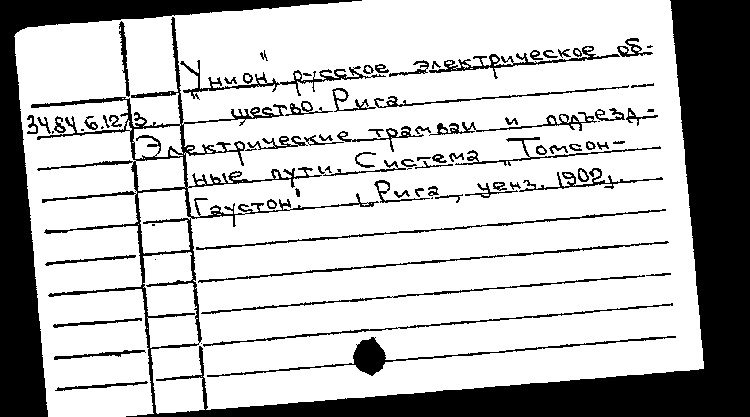 „Унион“, русское электрическое об-
щество. Рига.
34.84.6.1273.
Электрические трамваи и подъезд-
ные пути. Система „Томсон-
Гаустон“. [Рига, ценз. 1902].